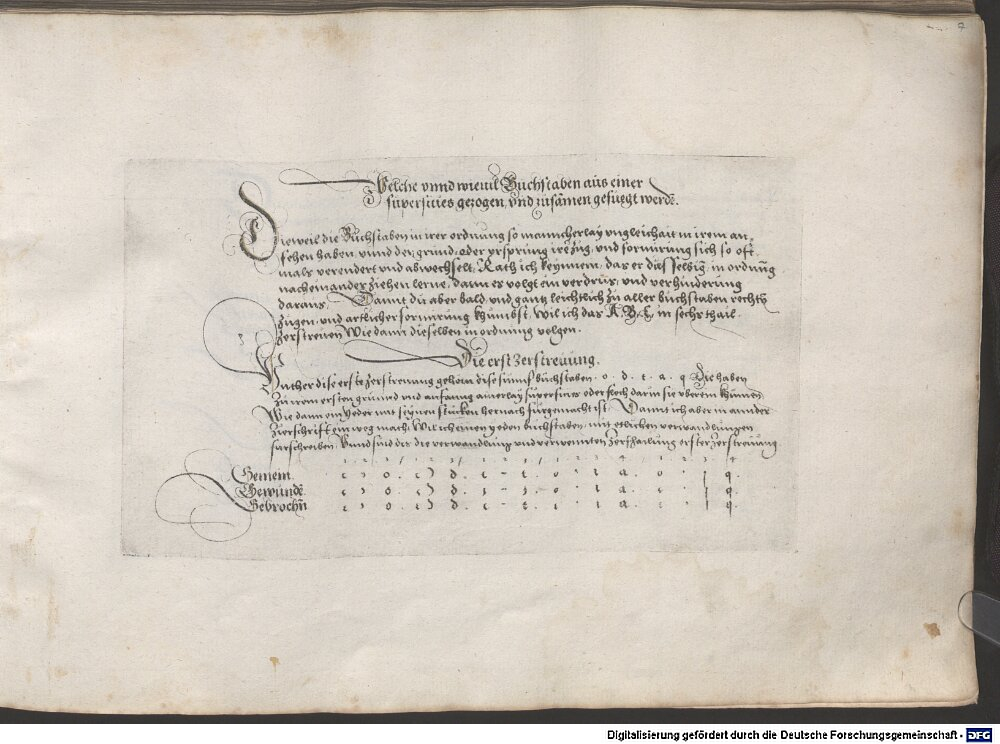 Welche vnnd wieuil Buchstaben aus einer
superficies gezogen, vnd zusamen gefüegt werdē.
Dieweil die Buchstaben in irer ordnung so mannicherlay vngleichait in irem an,
sehen haben, vnnd der, grund, oder vrsprung irē zug, vnd formirung sich so oft,
mals verendert vnd abwechselt, Rath ich keynnem, das er dasselbig, in ordnūg
nacheinander ziehen lerne, dann es volgt ein verdrus, vnd verhinderung
daraus. Damit du aber bald, vnd gantz leichtlich zu aller buchstaben rechtē
zügen, vnd artlicher formirung khumbst, wil ich das A. B. C. in sechs thail.
zerstreuen Wie dann dieselben in ordnung volgen.
Die erst Zerstreuung.
In dise erste zerstreuung gehörn dise fünff buchstaben. o. d. t. a. q Die haben
Zu irem ersten grund vnd anfanng ainerlay superficies oder darin sie
Wie dann ein yeder mit seynen stucken hernach fürgemacht ist. Damit ich aber in annder
Zierschrift ein weg mach, Wil ich einen yeden buchstaben, mit etlichen verwandlungen
fürschreiben, Vnnd sind dis die verwandlung vnd Zerthailung erster Zerstreuung
Gemein. o. d. t. a. q.
Gewundē o. d. a. q.
Gebrochñ o. d. t. a. q.
Digitalisierung gefördert durch die Deutsche Forschungsgemeinschaft - DFG